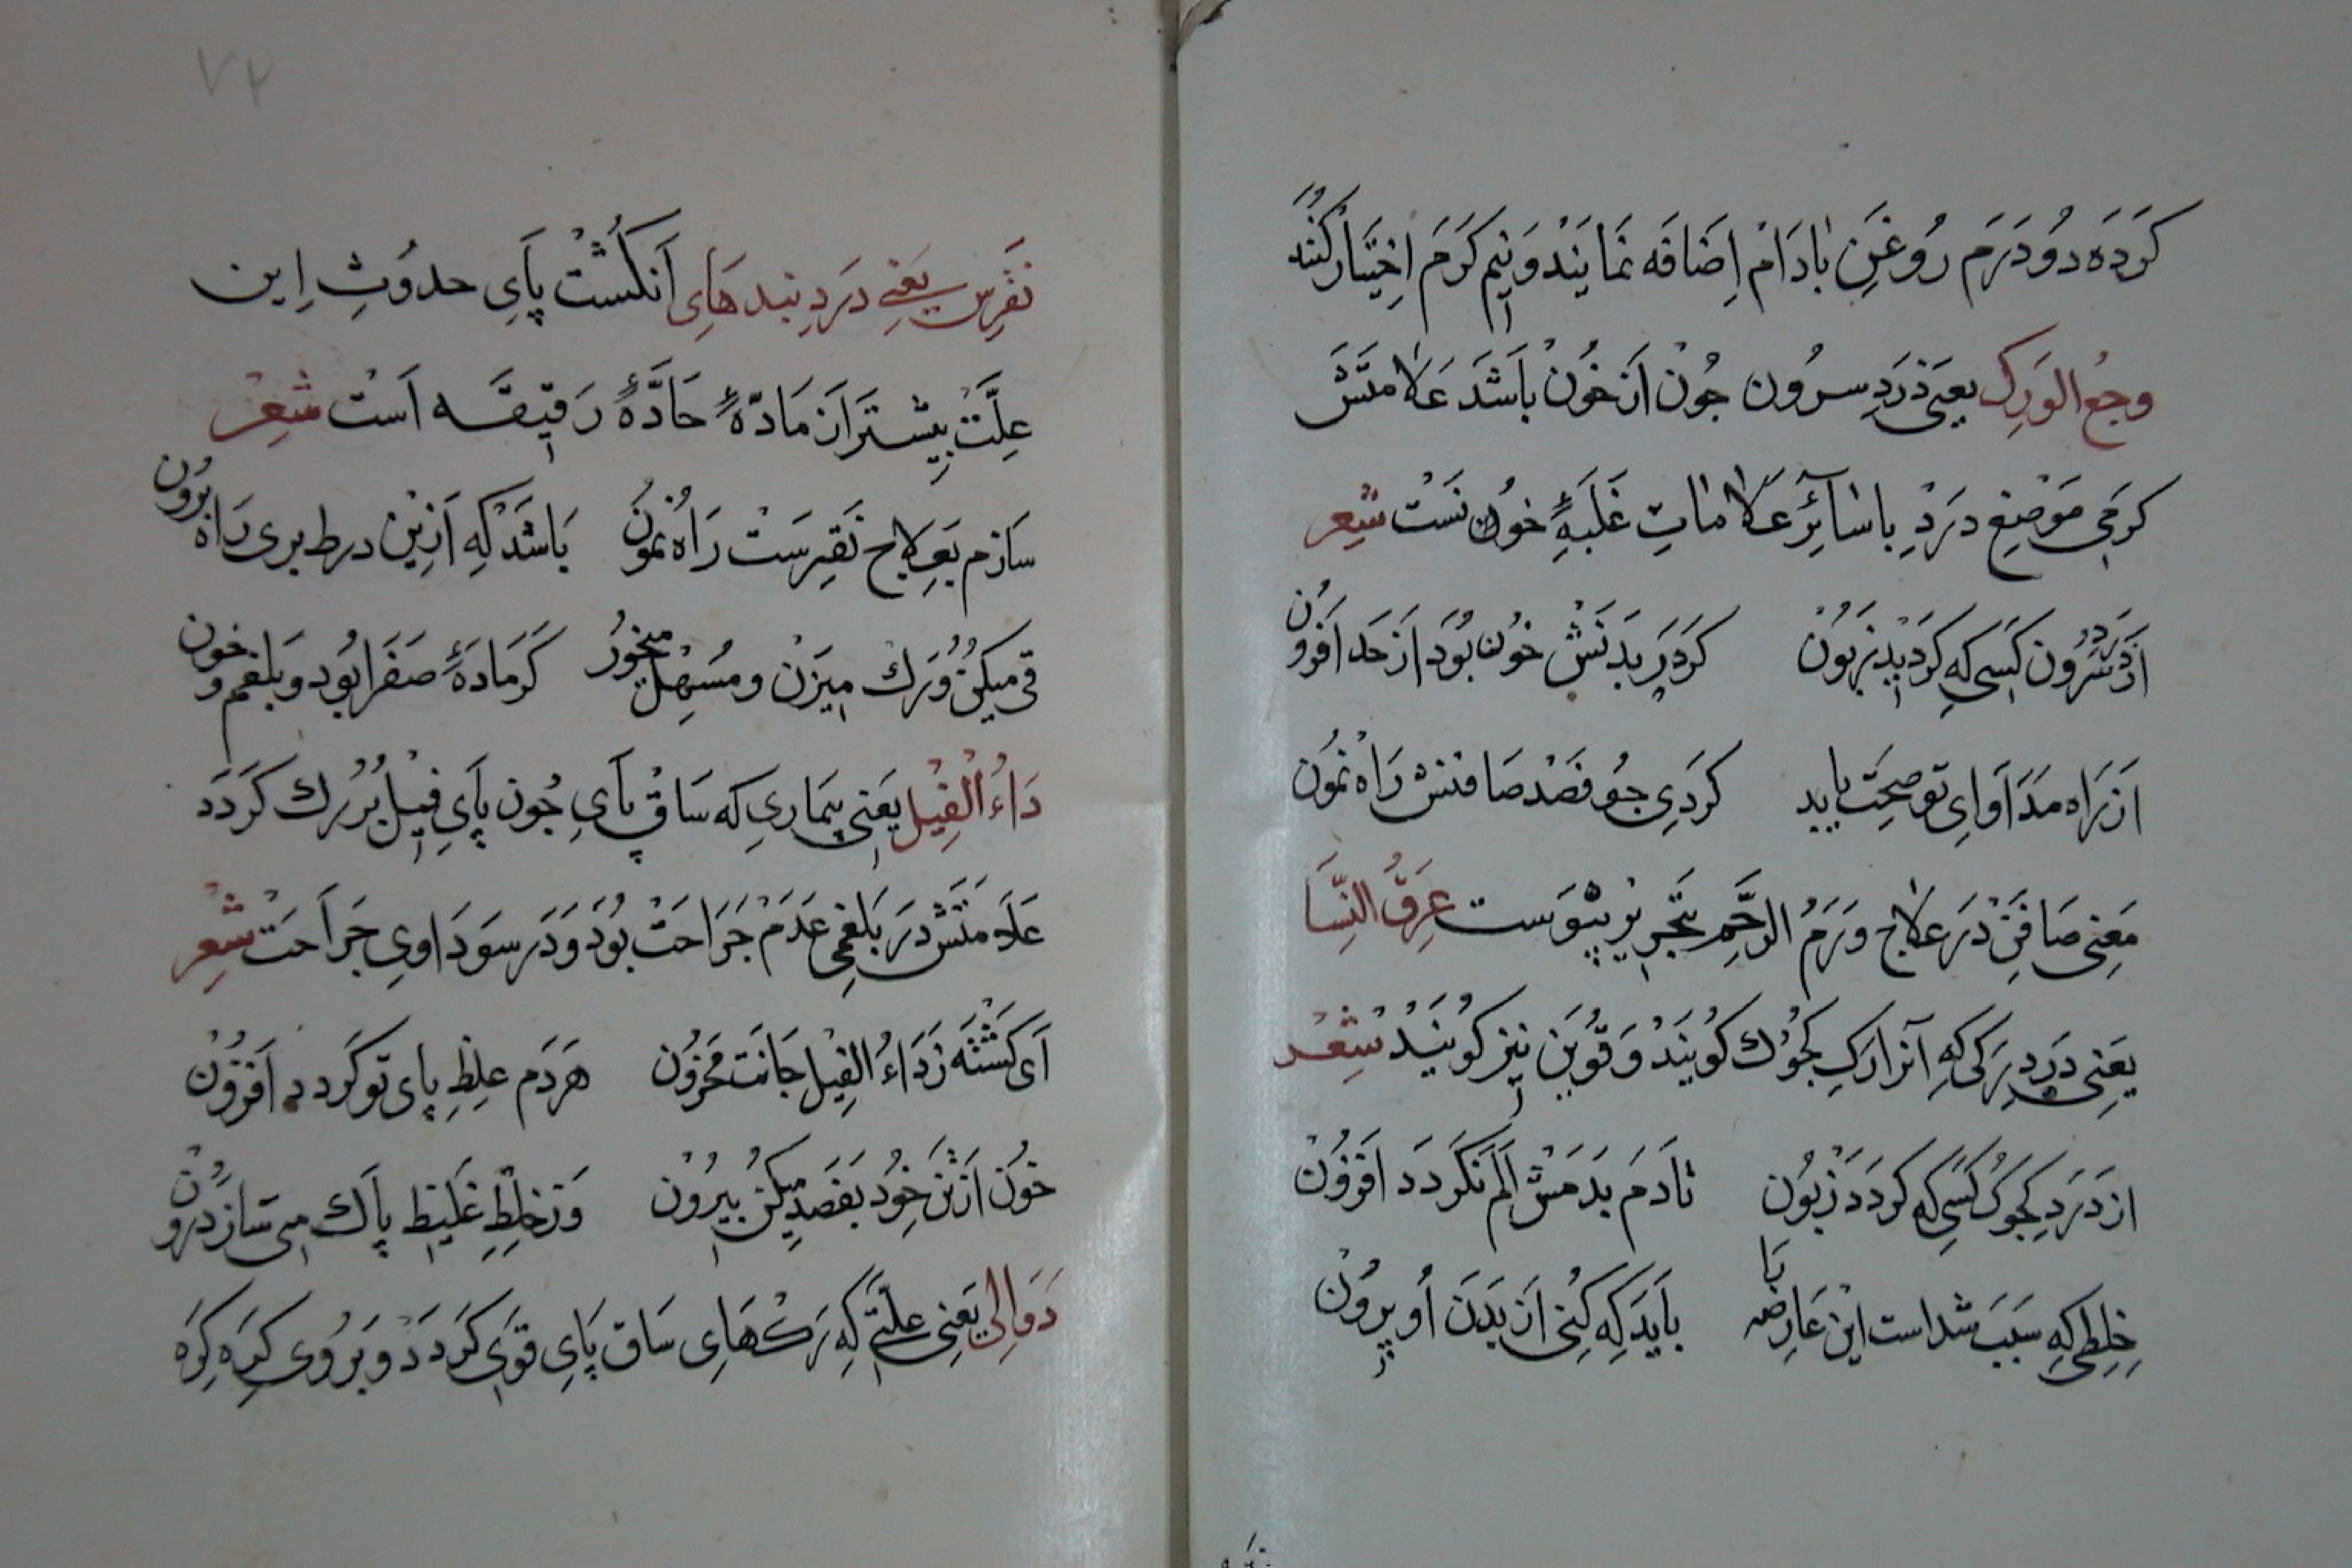 کرده دو درم روغن بادام اضافه نمایند و نیم کرم اختیار کنند
وجع الورك یعنی درد سرون جون از خون باشد علامتش
کرمی موضع درد با سائر علامات غلبهٔ خون نست شعر
از درد سرون کسی که کردید زبون کردر بدنش خون بود از حد افزون
از راه مداوای تو صحت یابد کردی جو فصد صافنش راه نمون
معنی صافن در علاج ورم الرحم بتحریر پیوست عرق النسا
یعنی درد رکی که آنرا رك کجوك کویند و قوین نیز کویند شعر
از درد کجوك کسی که کردد زبون تا دم بدمش الم نکردد افزون
خلطی که سبب شداست این عارضه را باید که کنی از بدن او بیرون
نقرس یعنی درد بندهای انکشت پای حدوث این
علت بیشتر از مادهٔ حادهٔ رقیقه است شعر
سازم بعلاج نقرست راه نمون باشد که ازین درط بری راه برون
قی میکن و رك میزن و مسهل میخور کر مادهٔ صفرا بود و بلغم و خون
داء الفیل یعنی بیماری که ساق پای جون پای فیل بزرك کردد
علامتش در بلغمی عدم جراحت بود و در سوداوی جراحت شعر
ای کشته ز داء الفیل جانت محزون هردم غلظ پای تو کردد افزون
خون از تن خود بفصد میکن بیرون وز خلط غلیظ پاك می ساز درون
دوالی یعنی علتی که رکهای ساق پای قوی کردد و بروی کره کره
۷۲